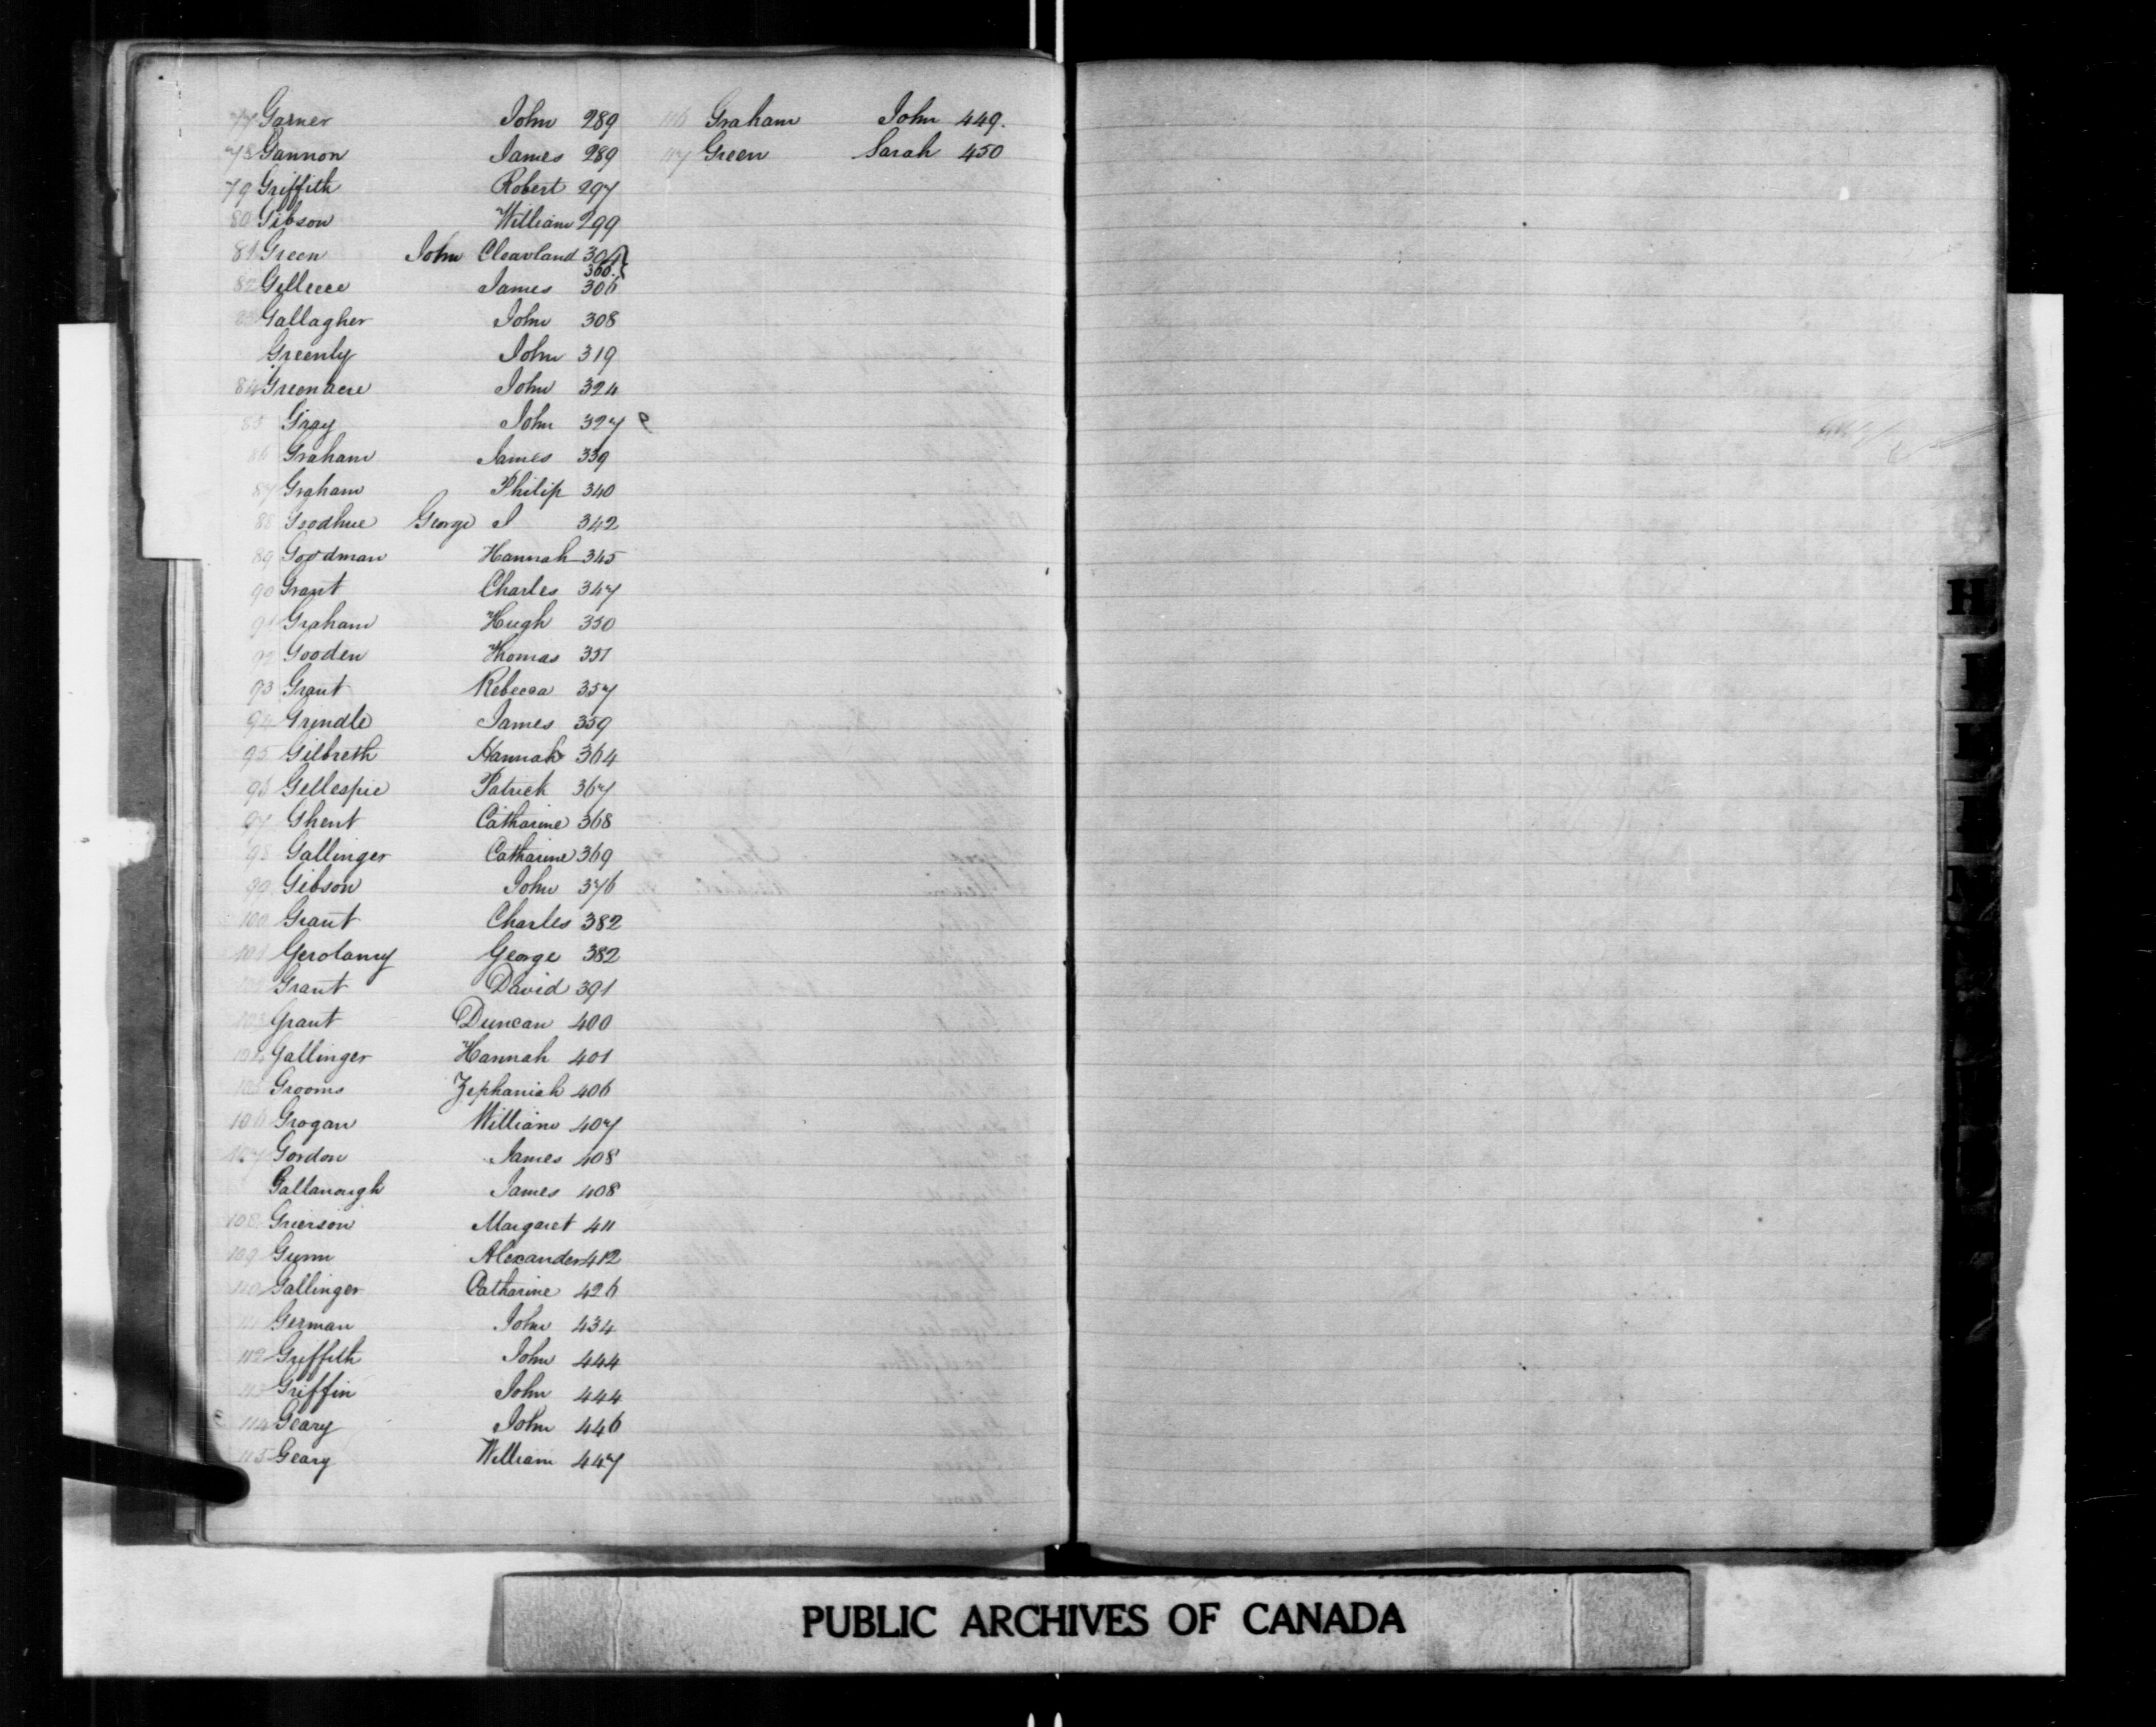 77 Garner John 289
78 Gannon James 289
79 Griffith Robert 297
80 Gibson William 299
81 Green John Cleavland 304
360
82 Gelleece James 306
83 Gallagher John 308
Greenly John 319
84 Greenacre John 324
85 Gray John 327
86 Graham James 339
87 Graham Philip 340
88 Goodhue George I 342
89 Goodman Hannah 345
90 Grant Charles 347
91 Graham Hugh 350
92 Gooden Thomas 351
93 Grant Rebecca 357
94 Grindle James 359
95 Gilbreth Hannah 364
96 Gellespie Patrick 367
97 Ghent Catharine 368
98 Gallinger Catharine 369
99 Gibson John 376
100 Grant Charles 382
101 Gerolamy George 382
102 Grant David 391
103 Grant Duncan 400
104 Gallinger Hannah 401
105 Grooms Zephaniah 406
106 Grogan William 407
107 Gordon James 408
Gallanough James 408
108 Grierson Margaret 411
109 Gunn Alexander 412
110 Gallinger Catharine 426
111 German John 434
112 Griffith John 444
113 Griffin John 444
114 Geary John 446
115 Geary William 447
116 Graham John 449.
117 Green Sarah 450
H
I
M
PUBLIC ARCHIVES OF CANADA